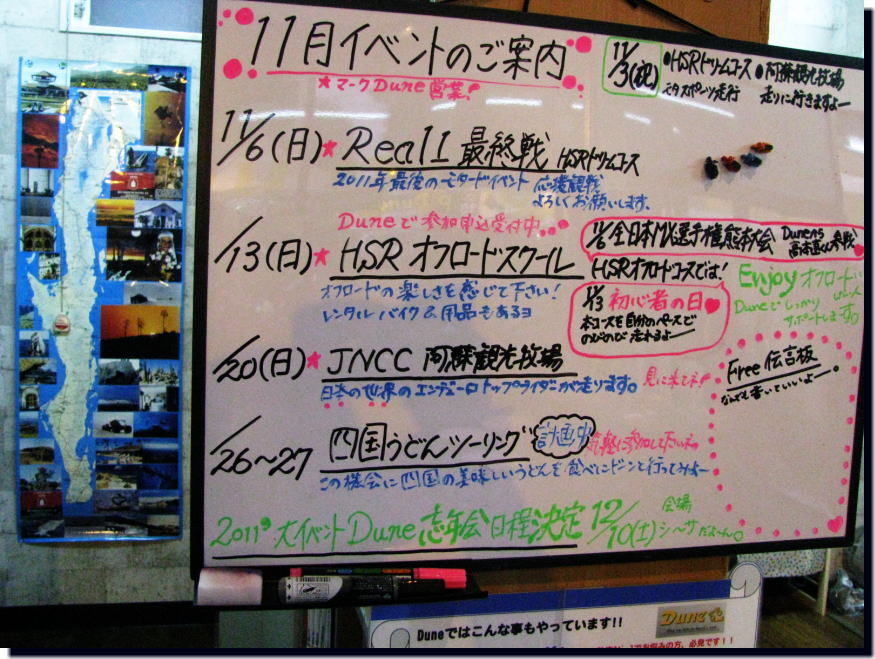 11月イベントのご案内
★マークDune営業!
11/3(祝)
●HSRドリームコース
スポーツ走行
●阿蘇観光牧場
走りに行きますよー
11/6(日)★Real1 最終戦 HSRドリームコース
2011年最後のモタードイベント 応援観戦
よろしくお願いします。
Duneで参加申込受付中
/13(日)★HSRオフロードスクール
オフロードの楽しさを感じて下さい!
レンタルバイク&用品もあるヨ
11/6全日本MX選手権熊本大会
HSRオフロードコースでは!
11/3 初心者の日
本コースを自分のペースで
のびのび走れるよー
Enjoyオフロード
Duneでしっかり
サポートします。
/20(日)★JNCC 阿蘇観光牧場
日本の世界のエンデューロトップライダーが走ります。見に来てネ!
Free伝言板
なんでも書いていいよー。
/26~27 四国うどんツーリング 計画中
気軽に参加して下さいネ
この機会に四国の美味しいうどんを食べにドーンと行ってみよー
2011' 大イベントDune忘年会日程決定 12/10(土) 会場
シ〜サだよ〜ん。
Duneではこんな事もやっています!!
Dune
の方、必見です!!